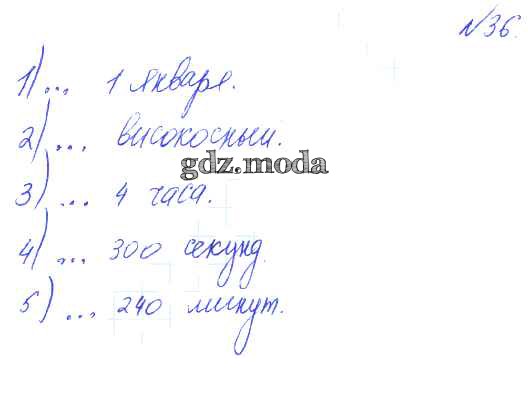 №36.
1) ... 1 января.
2) ... високосный.
gdz.moda
3) ... 4 часа.
4) ... 300 секунд.
5) ... 240 минут.